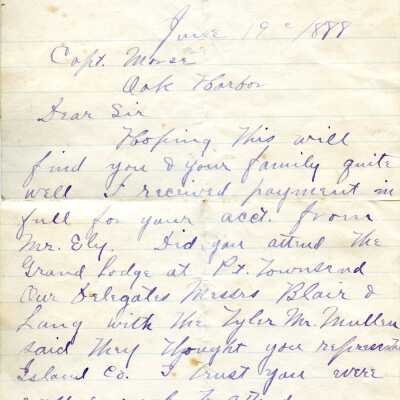 June 19th 1888
Capt. Morse
Oak Harbor
Dear Sir
Hoping this will
find you & your family quite
well I received payment in
full for your acct. from
Mr. Ely. Did you attend the
Grand Lodge at Pt. Townsend
Our Delegates Messrs Blair &
Lang with the Tyler Mr. Mullen
said they thought you represented
Island Co. I trust you were